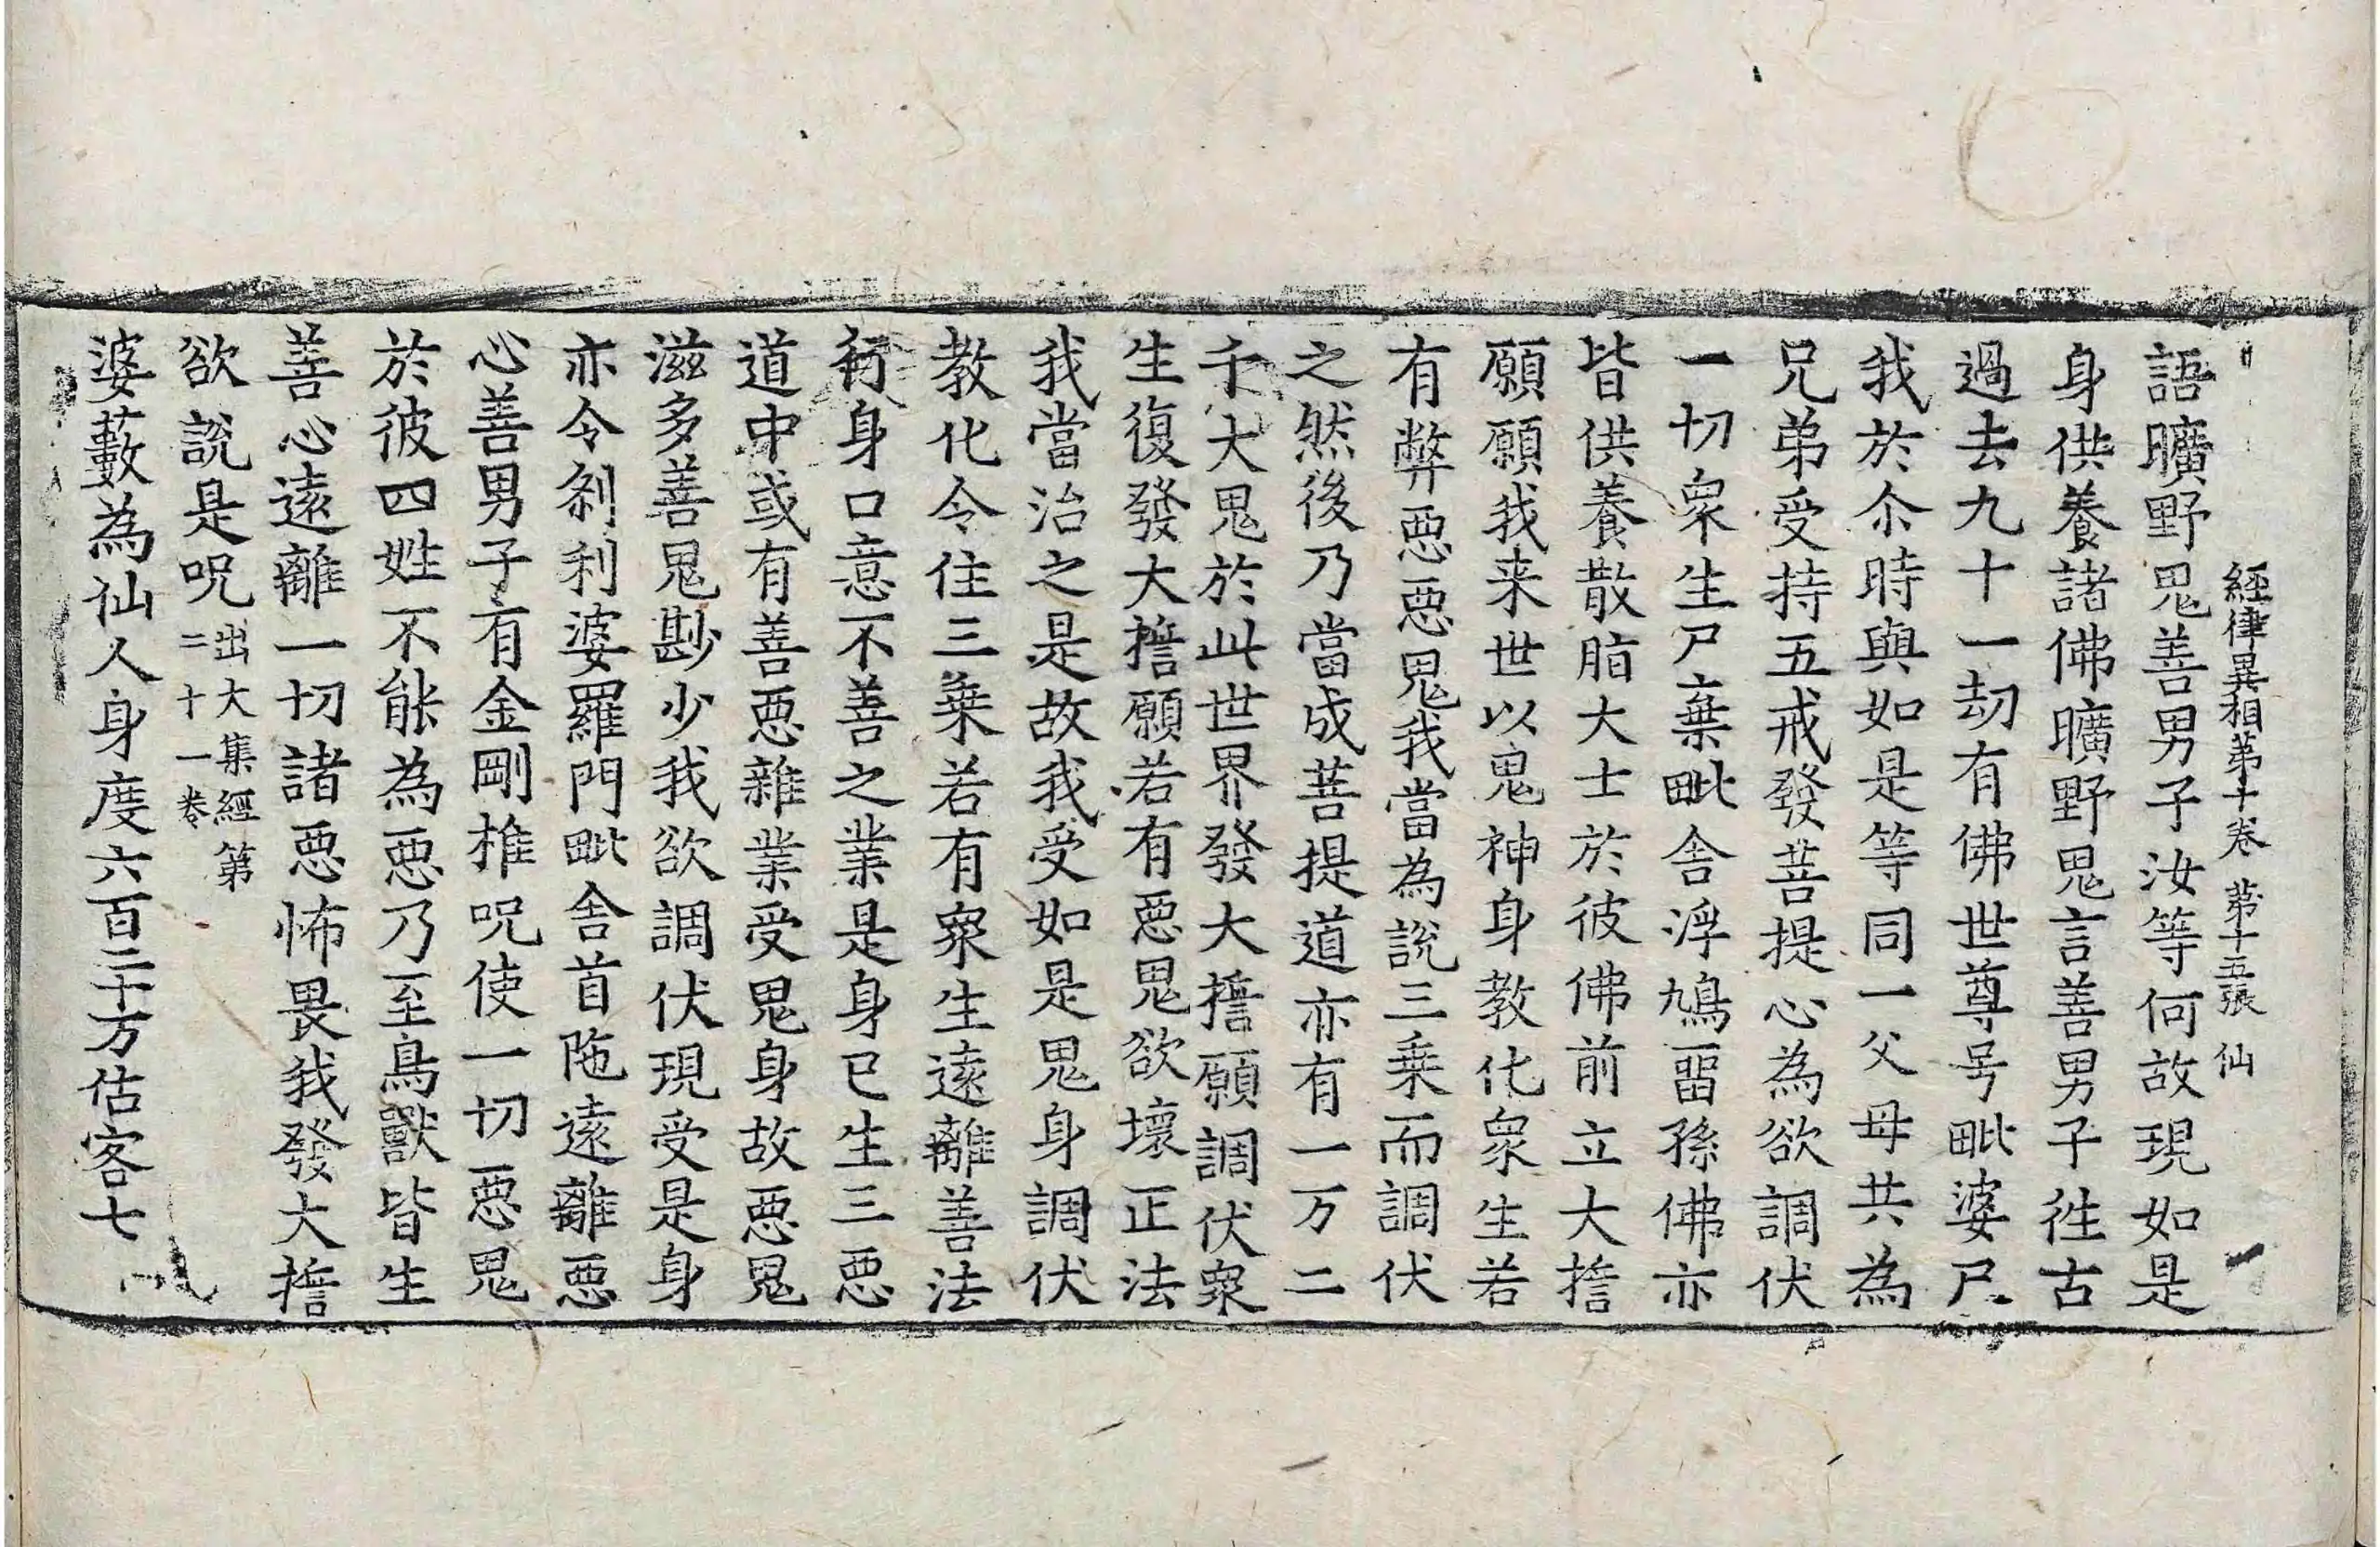 經律異相第十卷 第十五張 仙
語曠野鬼善男子汝等何故現如是
身供養諸佛曠野鬼言善男子徃古
過去九十一劫有佛世尊号毗婆尸
我於尒時與如是等同一父母共為
兄弟受持五戒發菩提心為欲調伏
一切衆生尸棄毗舍浮鳩留孫佛亦
皆供養散脂大士於彼佛前立大擔
願願我来世以鬼神身教化衆生若
有弊惡惡鬼我當為說三乗而調伏
之然後乃當成菩提道亦有一万二
千大鬼於此世界發大擔願調伏衆
生復發大擔願若有惡鬼欲壞正法
我當治之是故我受如是鬼身調伏
教化令住三乗若有衆生遠離善法
行身口意不善之業是身已生三惡
道中或有善惡雜業受鬼身故惡鬼
滋多善鬼尠少我欲調伏現受是身
亦令刹利婆羅門毗舍首陁遠離惡
心善男子有金剛椎呪使一切惡鬼
於彼四姓不能為惡乃至鳥獸皆生
善心遠離一切諸惡怖畏我發大擔
欲說是呪出大集經第二十一卷
婆藪為仙人身度六百二十万估客七